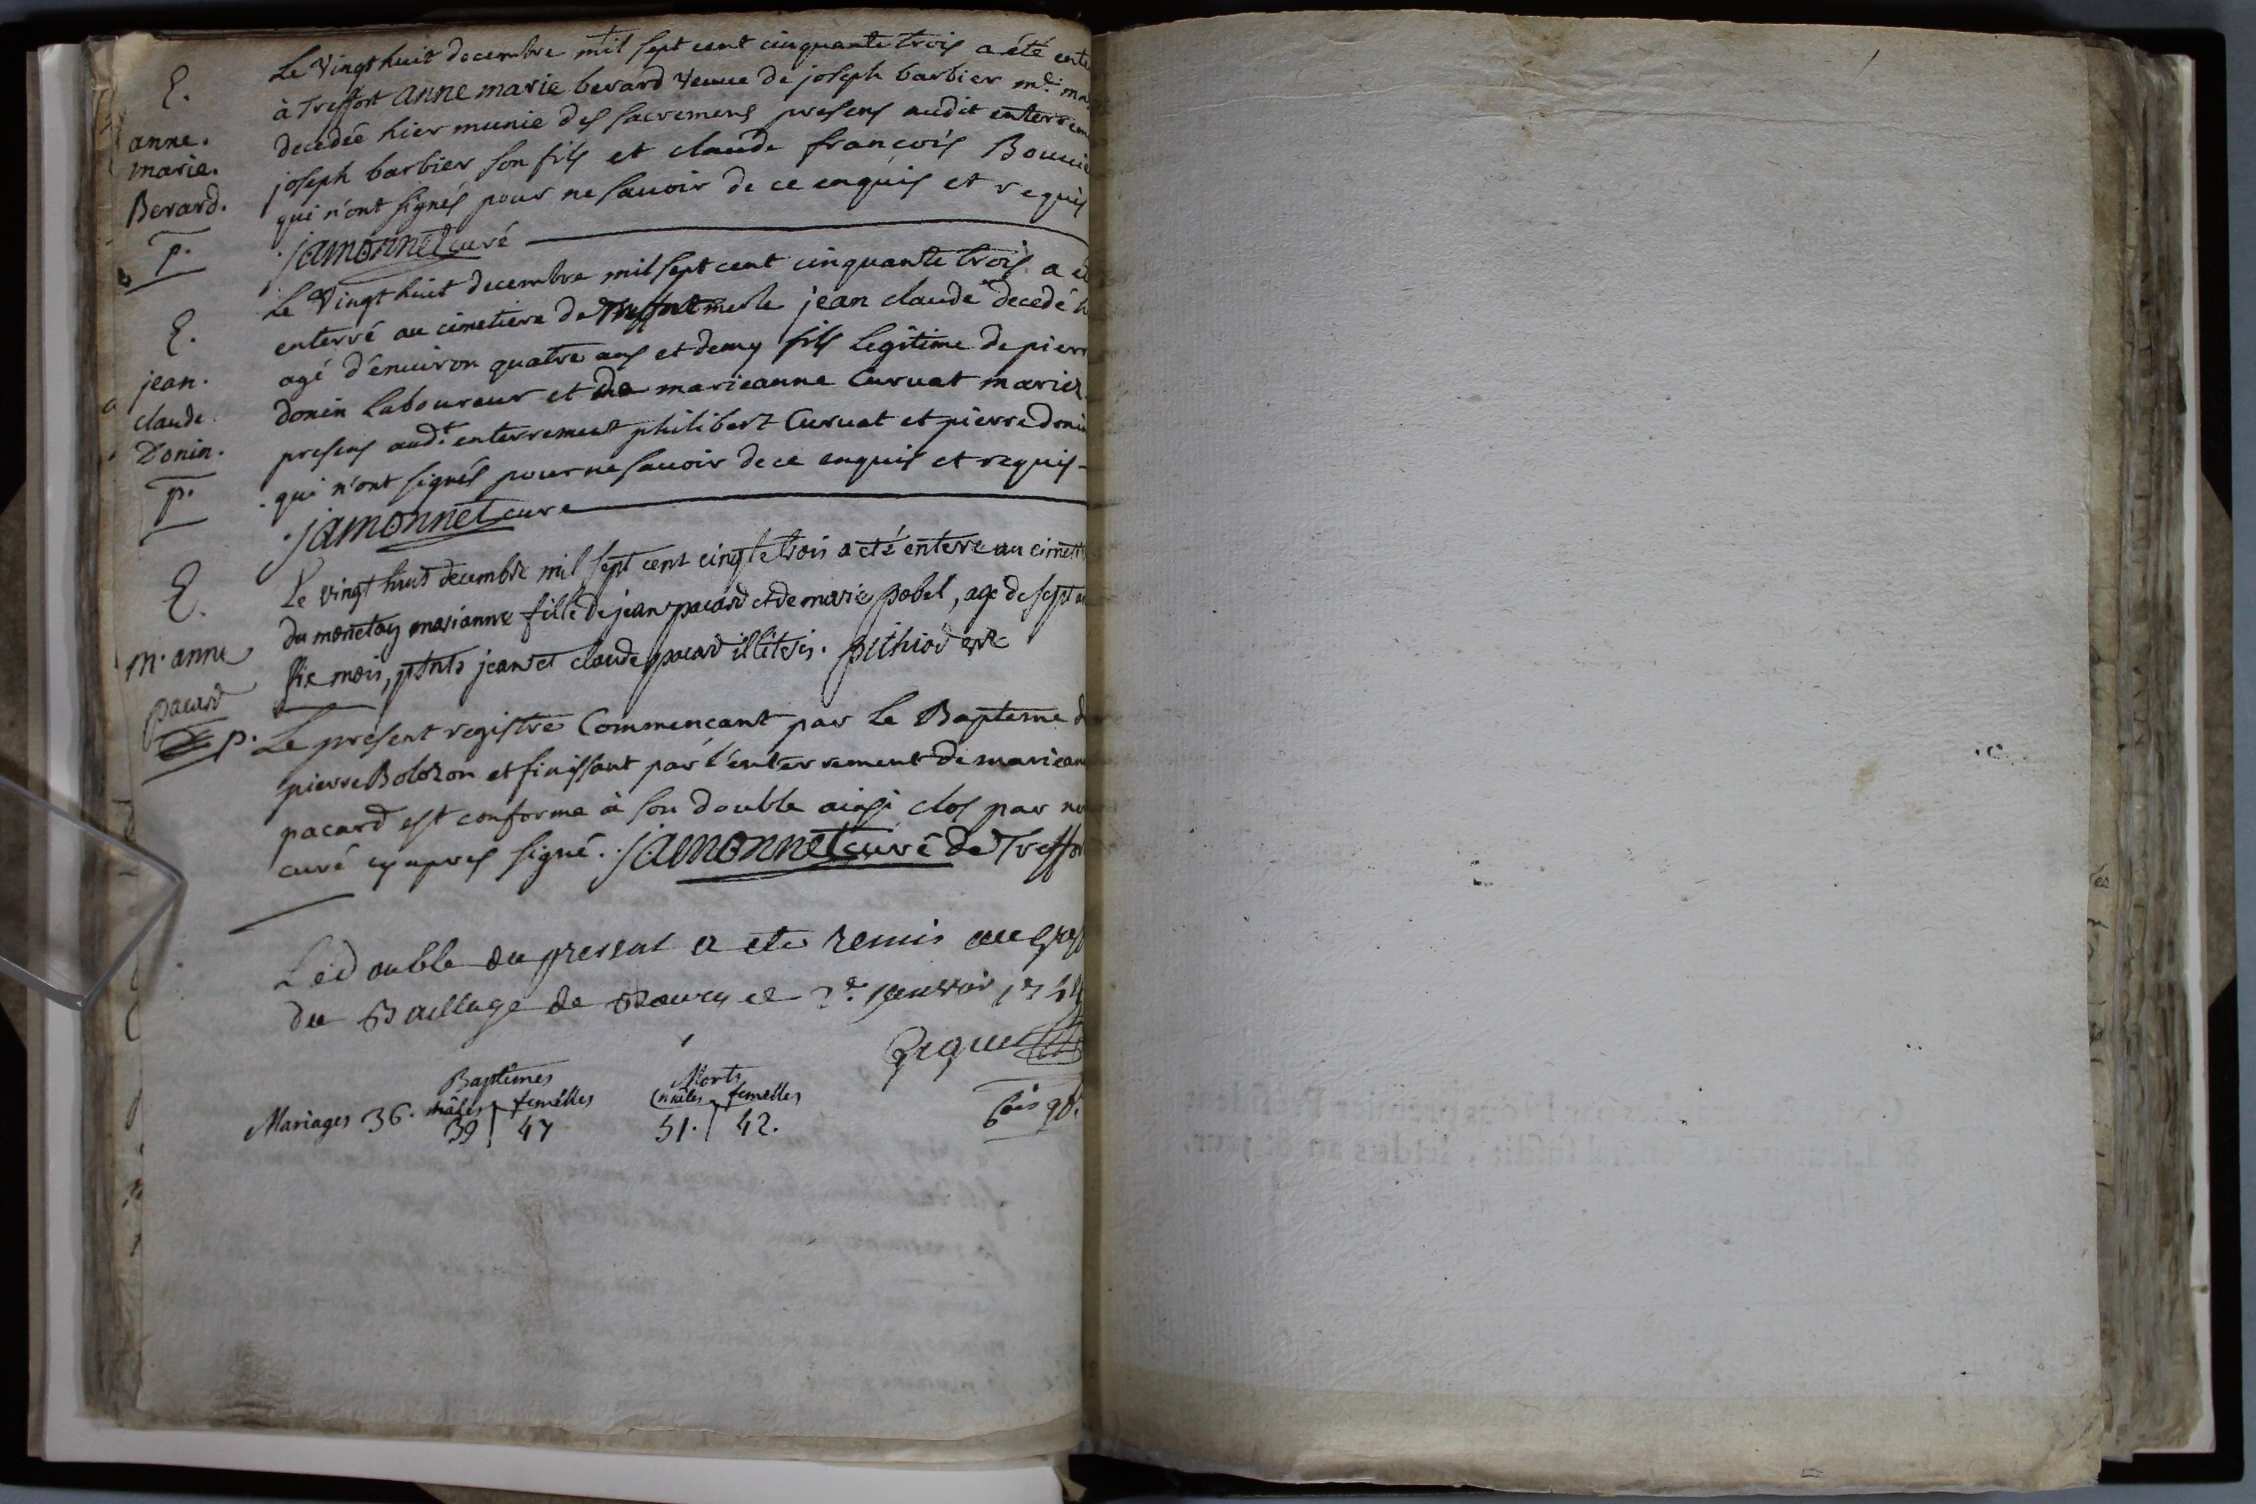 E.
anne.
marie.
Berard.
p.
Le Vingt huit decembre mil sept cent cinquante trois a été ente
à Treffort anne marie berard veuve de joseph barbier m.d ma
decedée hier munie des sacremens presens audit enterrem
joseph barbier son fils et claude françois Bouvie
qui n'ont signés pour ne savoir de ce enquis et requis
jamonnet curé
E.
jean.
claude.
Donin.
p.
Le Vingt huit decembre mil sept cent cinquante trois a é
enterré au cimetiere de jean claude decedé h
agé d'environ quatre ans et demy fils legitime de pierr
donin laboureur et de marieanne Curvat mariez
presens aud.t enterrement philibert Curvat et pierre doni
qui n'ont signés pour ne savoir de ce enquis et requis
jamonnet cure
E.
m. anne
pacard
p.
Le vingt huit decembre mil sept cent cinqte trois a eté enterré au cimeti
du monetay marianne fille de jean pacard et de marie pobel, age de sept a
six mois, pñts jean et claude pacard illiteris. pithiod
Le present registre Commencant par le Bapteme d
pierre Bolozon et finissant par l'enterrement de mariean
pacard est conforme à son double ainsi clos par no
curé cy apres signé. jamonnet curé de Treffor
Le double du present a ete remis au gref
du Baillage de Bourg ce 3.e janvier
Mariages 36.
Baptêmes
mâles femelles
39 47
Morts
mâles femelles
51. 42.